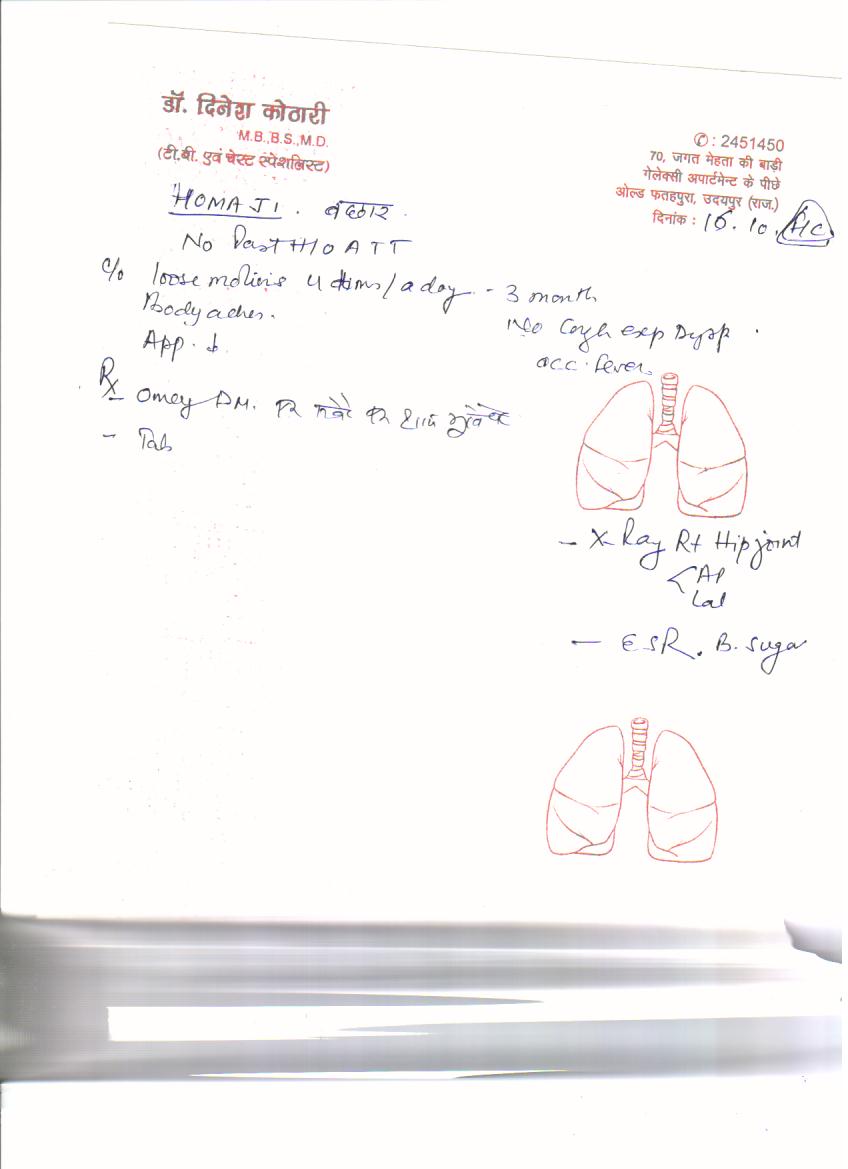 डॉ. दिनेश कोठारी
M.B.,B.S.,M.D.
(टी.बी. एवं चेस्ट स्पेशलिस्ट)
✆ : 2451450
70, जगत मेहता की बाड़ी
गेलेक्सी अपार्टमेन्ट के पीछे
ओल्ड फतहपुरा, उदयपुर (राज.)
दिनांक : 16.10.
HOMA JI.
No Past H/O ATT
c/o loose motions 4 tims/a day - 3 month
Body aches.
No Cough exp Dysp.
App. ↓
occ. fever.
Rx
- Omey DM.
- Tab
- X-Ray Rt Hip joint
AP
Lat
- ESR. B. Suga